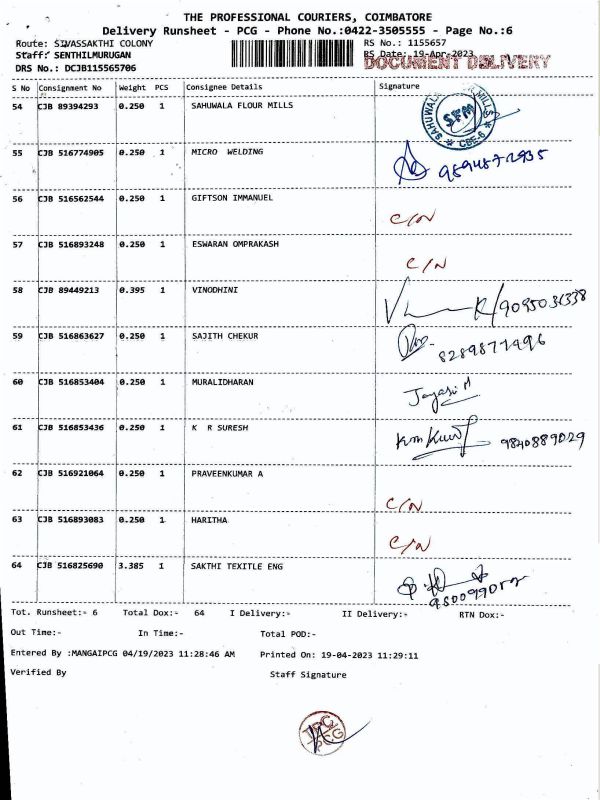 THE PROFESSIONAL COURIERS, COIMBATORE
Delivery Runsheet - PCG - Phone No.:0422-3505555 - Page No.:6
Route: SIVASSAKTHI COLONY RS No.: 1155657
Staff: SENTHILMURUGAN RS Date: 19-Apr-2023
DOCUMENT DELIVERY
DRS No.: DCJB115565706
S No Consignment No Weight PCS Consignee Details Signature
54 CJB 89394293 0.250 1 SAHUWALA FLOUR MILLS
SFM CBE-6
55 CJB 516774905 0.250 1 MICRO WELDING
56 CJB 516562544 0.250 1 GIFTSON IMMANUEL C/N
57 CJB 516893248 0.250 1 ESWARAN OMPRAKASH C/N
58 CJB 89449213 0.395 1 VINODHINI
59 CJB 516863627 0.250 1 SAJITH CHEKUR
60 CJB 516853404 0.250 1 MURALIDHARAN
61 CJB 516853436 0.250 1 K R SURESH 9840889029
62 CJB 516921064 0.250 1 PRAVEENKUMAR A C/N
63 CJB 516893083 0.250 1 HARITHA C/N
64 CJB 516825690 3.385 1 SAKTHI TEXITLE ENG
Tot. Runsheet:- 6 Total Dox:- 64 I Delivery:- II Delivery:- RTN Dox:-
Out Time:- In Time:- Total POD:-
Entered By :MANGAIPCG 04/19/2023 11:28:46 AM Printed On: 19-04-2023 11:29:11
Verified By Staff Signature